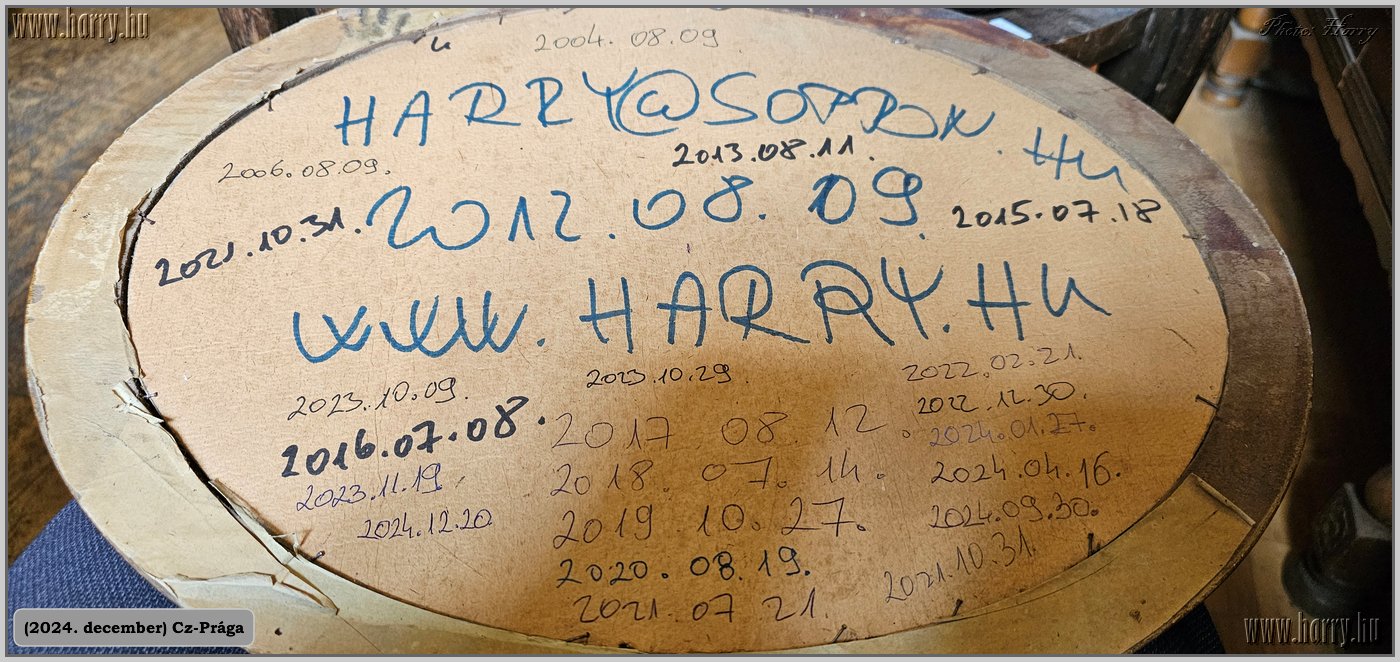 www.harry.hu
Photo: Harry
2004. 08. 09.
HARRY@SOPRON.HU
2013.08.11.
2006.08.09.
2012.08.09.
2015.07.18
2021.10.31.
WWW.HARRY.HU
2023.10.09.
2023.10.29.
2022.02.21.
2022.12.30.
2016.07.08.
2017 08. 12.
2024.01.27.
2023.11.19.
2018. 07. 14.
2024.04.16.
2024.12.20
2019 10. 27.
2024.09.30.
2020. 08.19.
2021.10.31.
2021. 07 21.
(2024. december) Cz-Prága
www.harry.hu